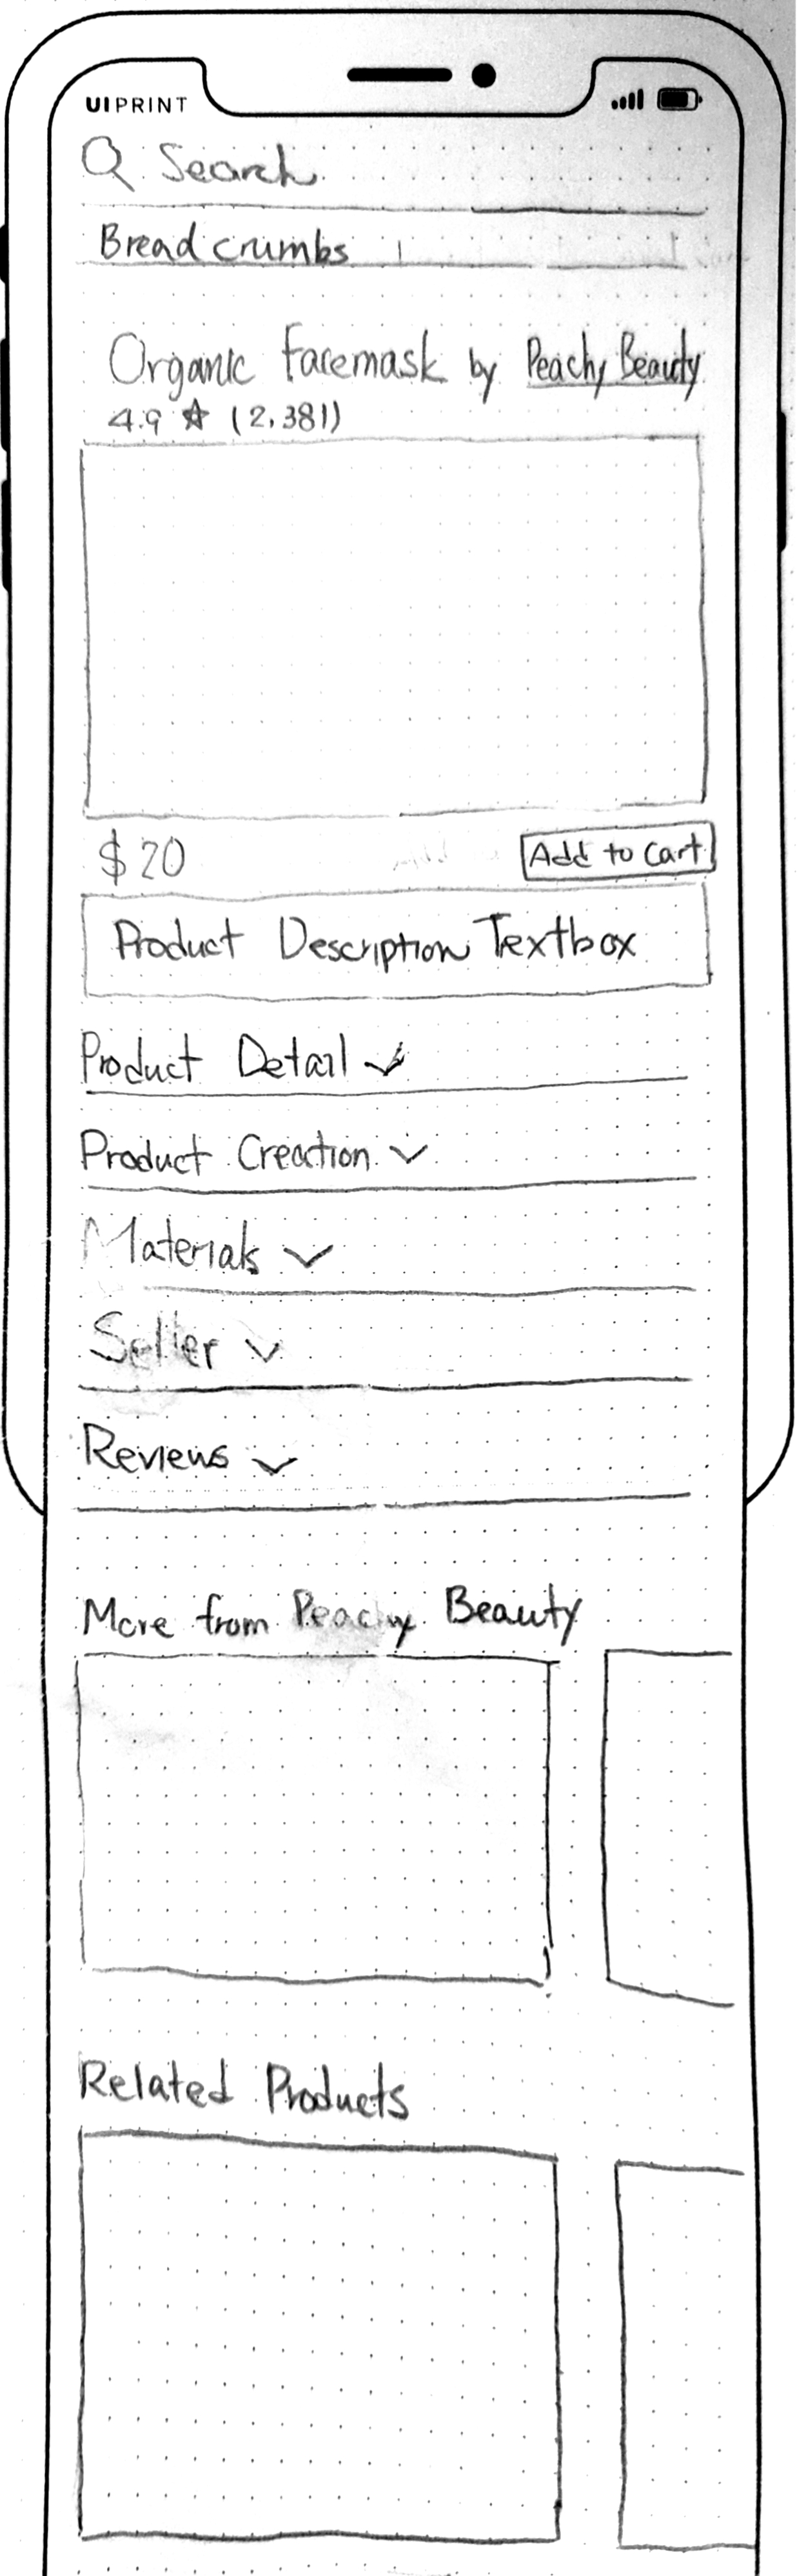 UIPRINT
Search
Breadcrumbs
Organic Facemask by Peachy Beauty
4.9 ☆ (2,381)
$20
Add to Cart
Product Description Textbox
Product Detail
Product Creation
Materials
Seller
Reviews
More from Peachy Beauty
Related Products